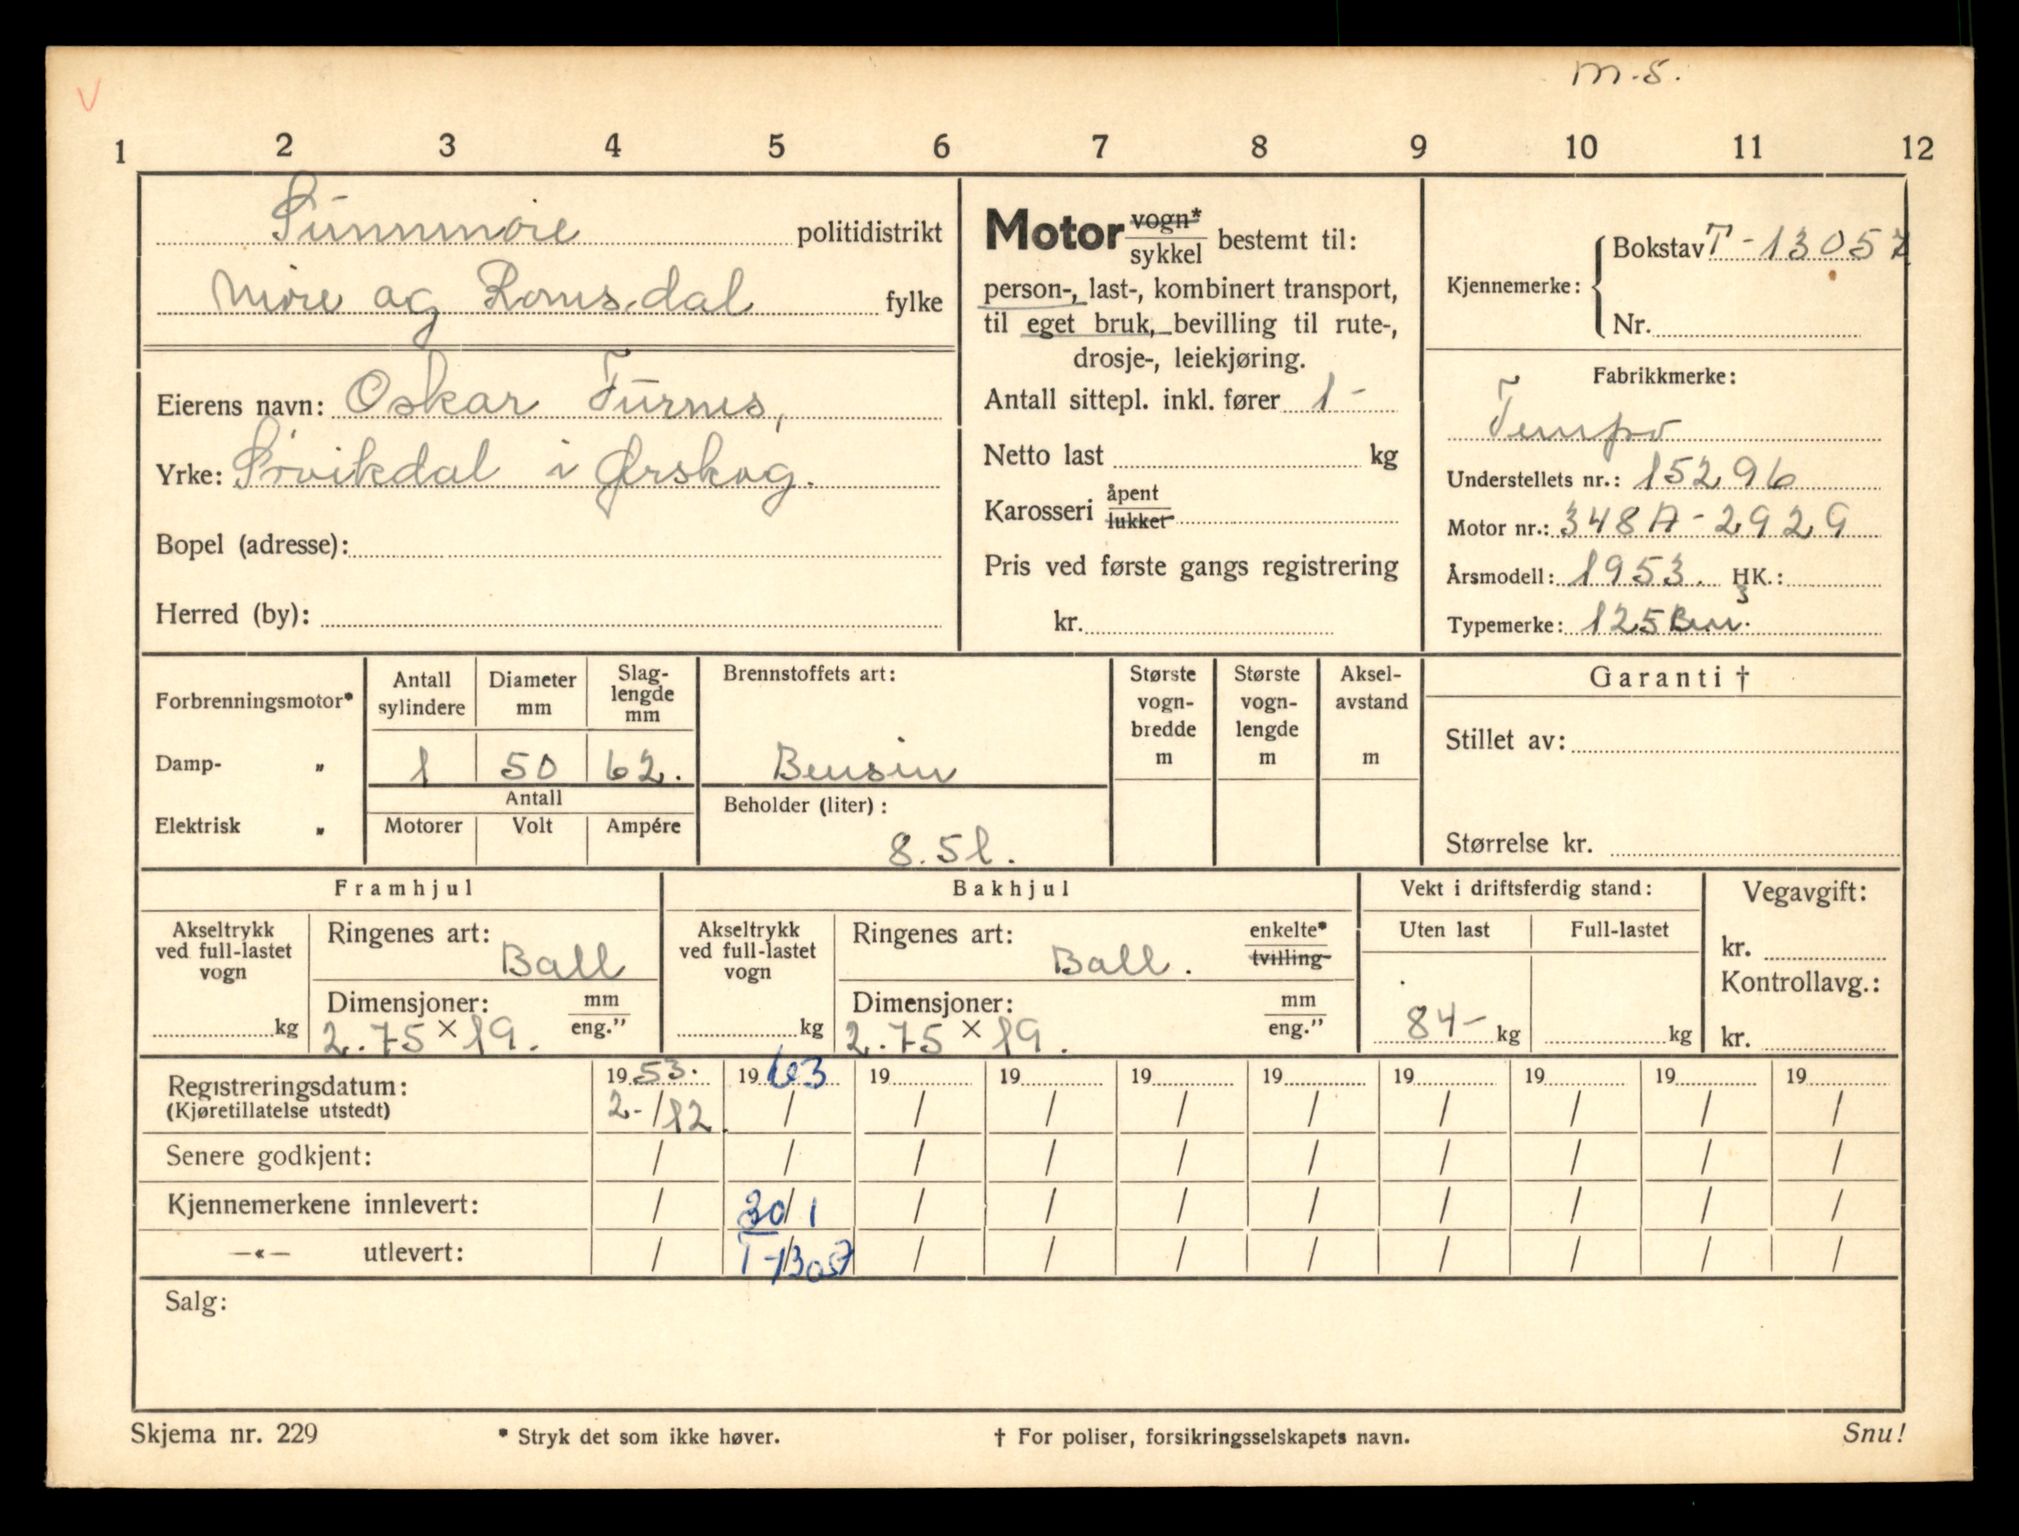 V
m.s.
1 2 3 4 5 6 7 8 9 10 11 12
Sunnmøre politidistrikt
Møre og Romsdal fylke
Eierens navn: Oskar Furnes,
Yrke: Søvikdal i Ørskog.
Bopel (adresse):
Herred (by):
Motor vogn* / sykkel bestemt til:
person-, last-, kombinert transport,
til eget bruk, bevilling til rute-,
drosje-, leiekjøring.
Antall sittepl. inkl. fører 1-
Netto last kg
Karosseri åpent / lukket
Pris ved første gangs registrering
kr.
Kjennemerke: { Bokstav T-13057
Nr.
Fabrikkmerke:
Tempo
Understellets nr.: 15296
Motor nr.: 348A-2929
Årsmodell: 1953. HK.:
Typemerke: 125 3
Forbrenningsmotor*
Damp- "
Elektrisk "
Antall sylindere
Diameter mm
Slag-
lengde
mm
1 50 62.
Antall
Motorer Volt Ampére
Brennstoffets art:
Bensin
Beholder (liter):
8.5 l.
Største
vogn-
bredde
m
Største
vogn-
lengde
m
Aksel-
avstand
m
Garanti †
Stillet av:
Størrelse kr.
Framhjul
Akseltrykk
ved full-lastet
vogn
kg
Ringenes art:
Ball
Dimensjoner: mm / eng."
2.75 x 19.
Bakhjul
Akseltrykk
ved full-lastet
vogn
kg
Ringenes art: enkelte* / tvilling
Ball.
Dimensjoner: mm / eng."
2.75 x 19.
Vekt i driftsferdig stand:
Uten last Full-lastet
84- kg kg
Vegavgift:
kr.
Kontrollavg.:
kr.
Registreringsdatum: 1953. 1963 19 19 19 19 19 19 19 19
(Kjøretillatelse utstedt) 2-/12. / / / / / / / / /
Senere godkjent: / / / / / / / / / /
Kjennemerkene innlevert: / 30/1 / / / / / / / /
—«— utlevert: / T-13057 / / / / / / / /
Salg:
Skjema nr. 229 * Stryk det som ikke høver. † For poliser, forsikringsselskapets navn. Snu!